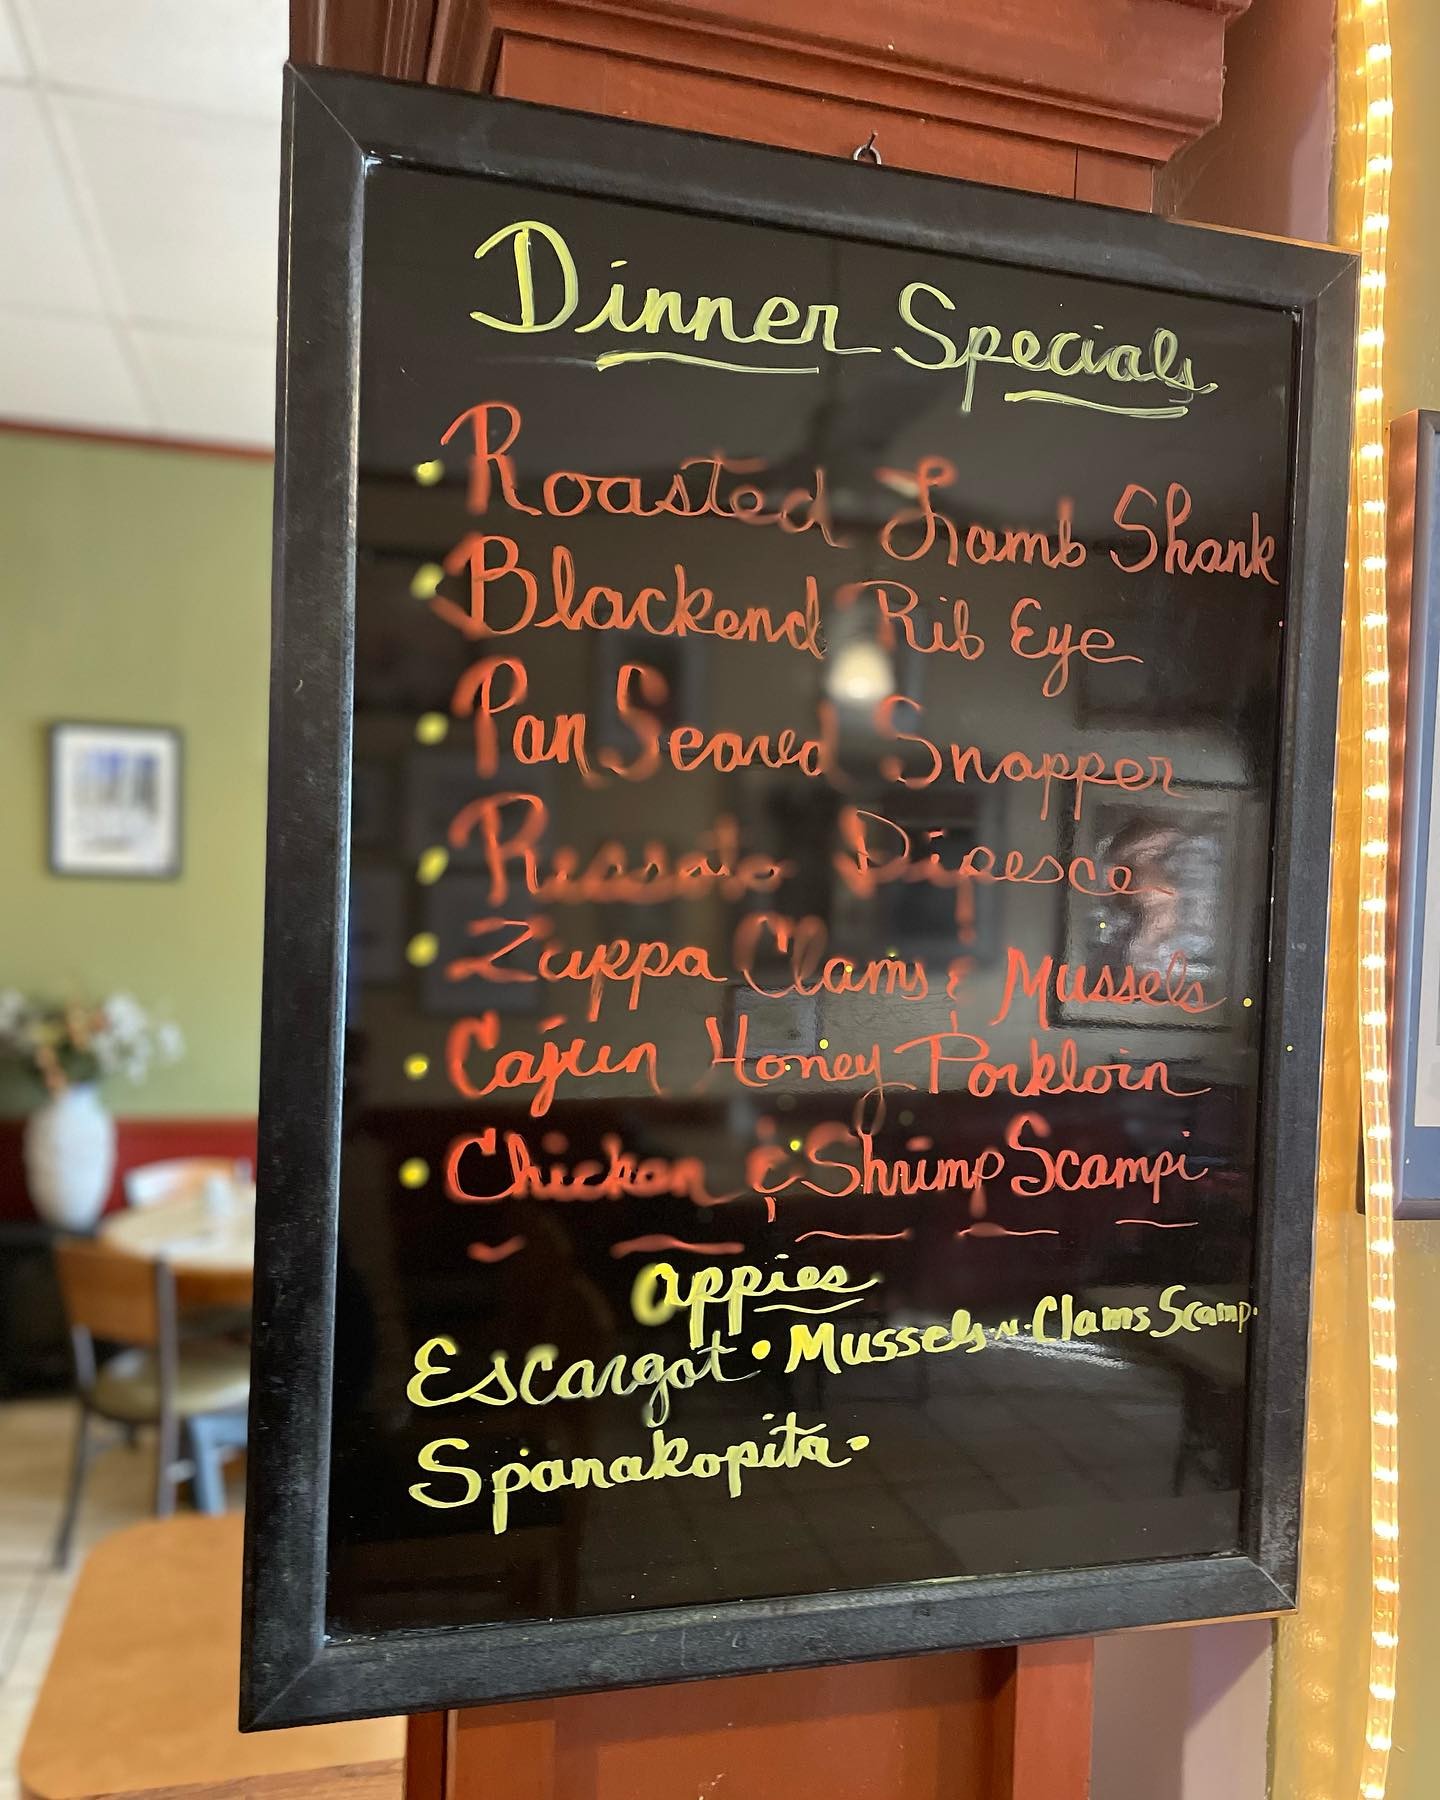 Dinner Specials
• Roasted Lamb Shank
• Blackend Rib Eye
• Pan Seared Snapper
• Ressoto Dipesce
• Zuppa Clams & Mussels.
• Cajun Honey Porkloin
• Chicken & Shrimp Scampi
appies
Escargot • Mussels-n-Clams Scamp.
Spanakopita.